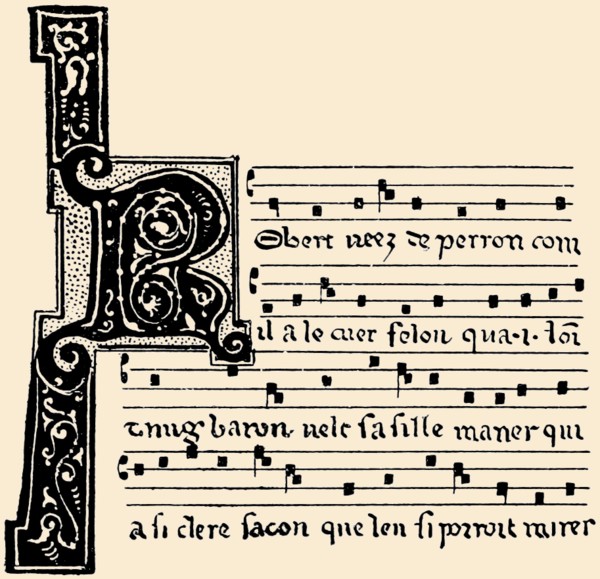 Robert veez de perron com
il a le cuer felon qua·i· loī
tnug baron velt sa fille maner qui
a si clere facon que len si porroit mirer